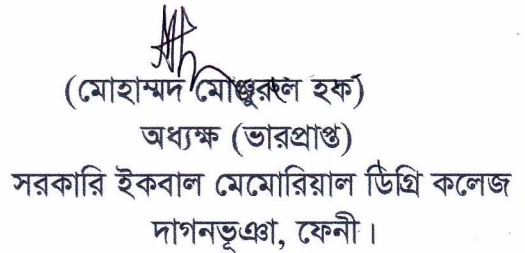 (মোহাম্মদ মোঞ্জুরুল হক)
অধ্যক্ষ (ভারপ্রাপ্ত)
সরকারি ইকবাল মেমোরিয়াল ডিগ্রি কলেজ
দাগনভূঞা, ফেনী।